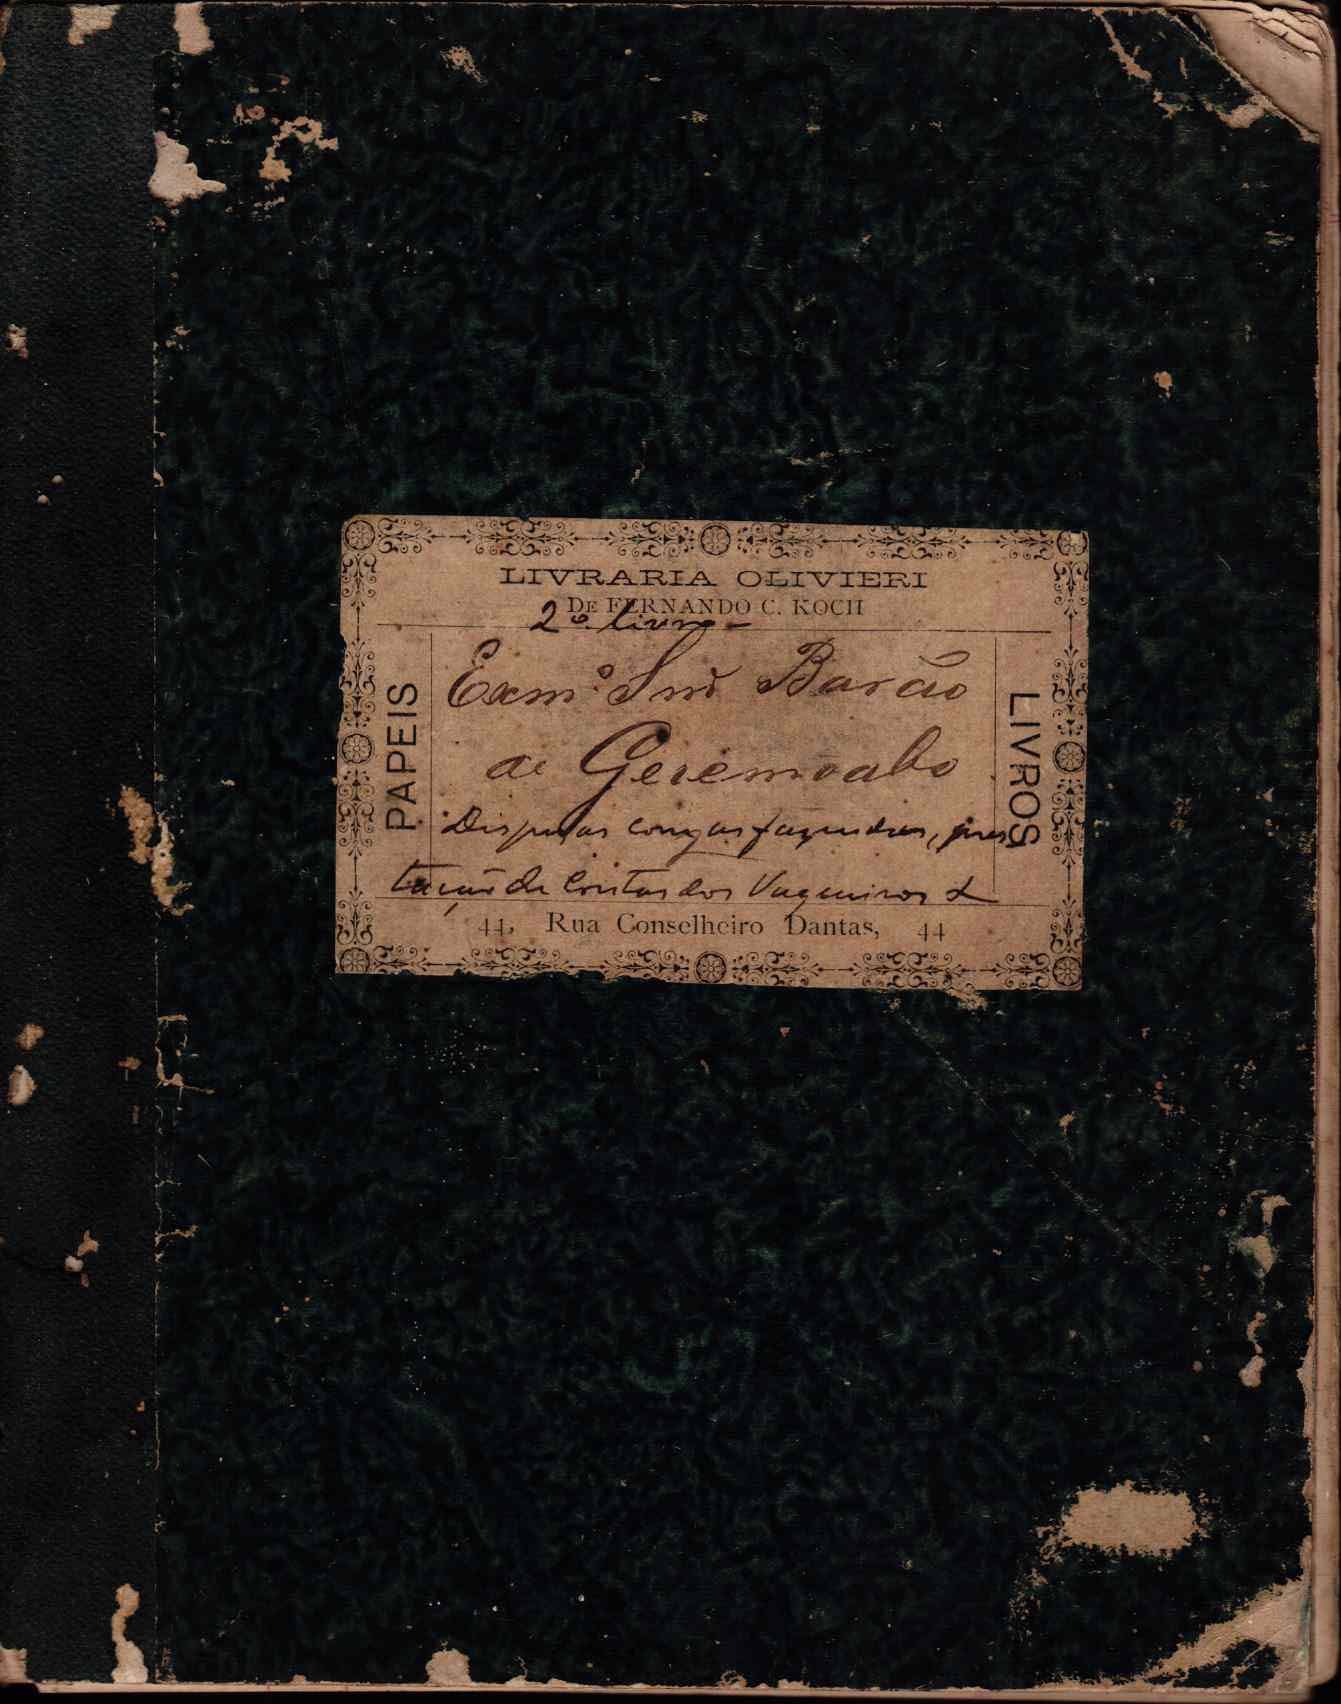 LIVRARIA OLIVIERI
DE FERNANDO C. KOCH
2º. livro -
Exmº. Snr Barão
de Geremoabo
PAPEIS
LIVROS
Dispesas com as fazendas, pres
tação de Contas dos Vaqueiros &
44, Rua Conselheiro Dantas, 44